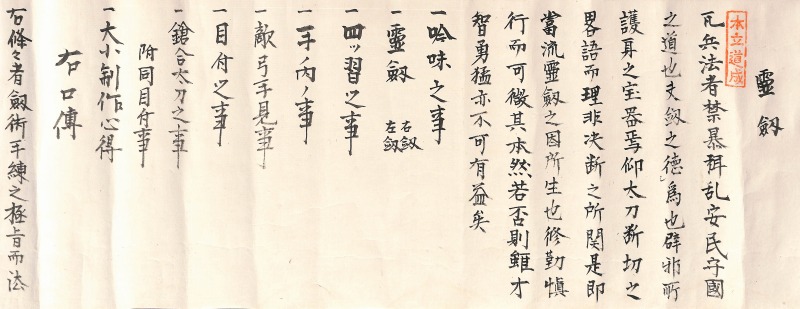 靈劔
本立道成
凡兵法者禁暴秬乱安民守國
之道也夫劔之德為也辟邪所
護身之宝器焉仰太刀断切之
畧語而理非决断之所関是即
當流靈劔之因所生也修勤慎
行而可徴其本然若否則雖才
智勇猛亦不可有益矣
一吟味之事
一靈劔 右劔 左劔
一四ッ習之事
一手内ノ事
一敵弓手見事
一目付之事
一鎗合太刀之事
附同目付事
一大小制作心得
右口傳
右條々者劔術手練之極旨而法